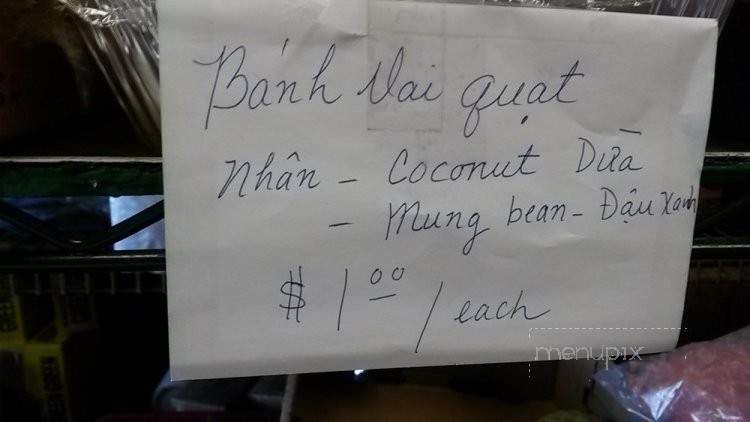 Bánh Vai quạt
Nhân - Coconut Dừa
- Mung bean - Đậu xanh
$ 1 00 / each
menupix